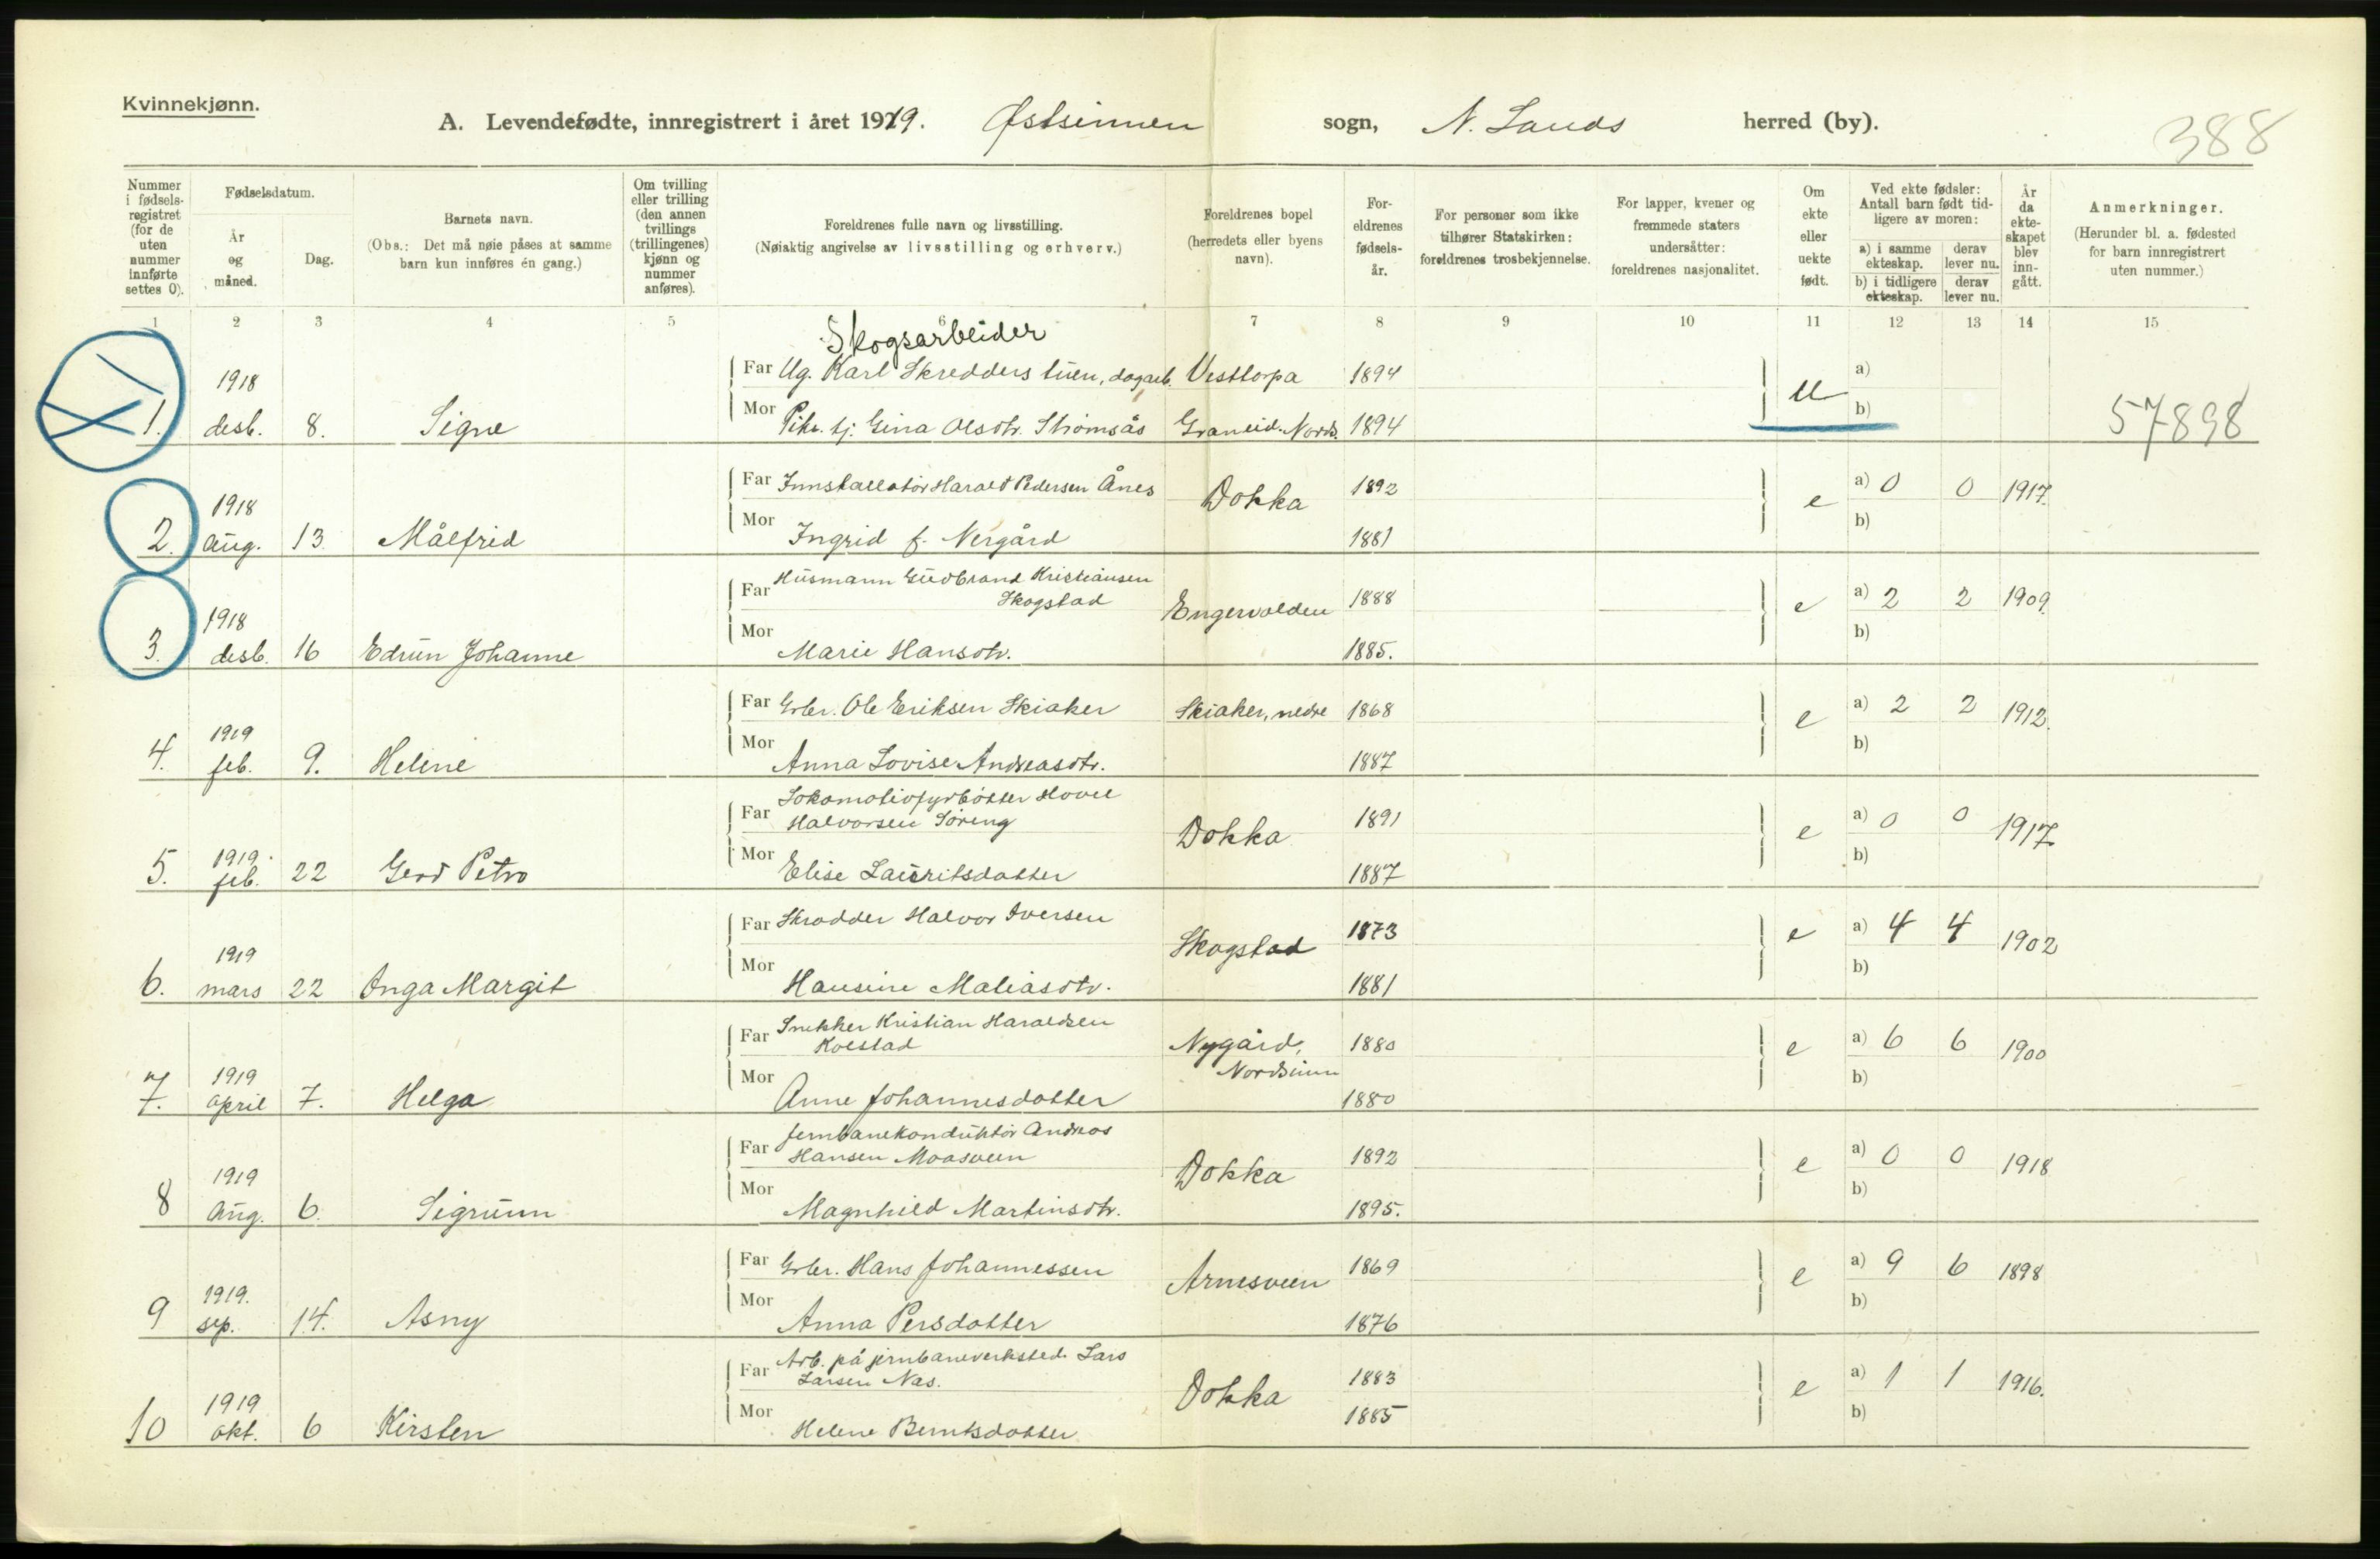 Kvinnekjønn.
A. Levendefødte, innregistrert i året 1919. Østsinnen sogn, N. Lands herred (by).
388
Nummer i fødsels-registret (for de uten nummer innførte settes 0).
Fødselsdatum.
År og måned.
Dag.
Barnets navn.
(Obs.: Det må nøie påses at samme barn kun innføres én gang.)
Om tvilling eller trilling (den annen tvillings (trillingenes) kjønn og nummer anføres).
Foreldrenes fulle navn og livsstilling.
(Nøiaktig angivelse av livsstilling og erhverv.)
Foreldrenes bopel (herredets eller byens navn).
For-eldrenes fødsels-år.
For personer som ikke tilhører Statskirken: foreldrenes trosbekjennelse.
For lapper, kvener og fremmede staters undersåtter: foreldrenes nasjonalitet.
Om ekte eller uekte født.
Ved ekte fødsler: Antall barn født tid-ligere av moren:
a) i samme ekteskap. derav lever nu.
b) i tidligere ekteskap. derav lever nu.
År da ekte-skapet blev inn-gått.
Anmerkninger.
(Herunder bl. a. fødested for barn innregistrert uten nummer.)
1 2 3 4 5 6 7 8 9 10 11 12 13 14 15
Skogsarbeider
1918 Far Ug. Karl Skredderstuen, dagarb. Vesttorpa 1894 a)
1. desb. 8. Signe Mor Pike. tj. Gina Olsdtr. Strømsås Graneid. Nords. 1894 u b) 57898
1918 Far Innstallatør Harald Pedersen Ånes Dokka 1892 e a) 0 0 1917.
2. Aug. 13. Målfrid Mor Ingrid f. Nergård 1881 b)
1918 Far Husmann Gudbrand Kristiansen Skogstad Engervolden 1888 e a) 2 2 1909.
3. desb. 16 Edrun Johanne Mor Marie Hansdtr. 1885. b)
1919 Far Grbr. Ole Eriksen Skiaker Skiaker, nedre 1868 e a) 2 2 1912.
4. feb. 9. Helene Mor Anna Lovise Andreasdtr. 1887 b)
1919. Far Lokomotivfyrbøtter Hovel Halvorsen Søreng Dokka 1891 e a) 0 0 1917.
5. feb. 22 Gerd Petro Mor Elise Lauritsdatter 1887 b)
1919 Far Skrædder Halvor Iversen Skogstad 1873 e a) 4 4 1902
6. mars 22 Inga Margit Mor Hansine Matiasdtr. 1881 b)
1919 Far Snekker Kristian Haraldsen Kolstad Nygård, Nordsinn 1880 e a) 6 6 1900
7. april 7. Helga Mor Anne Johannesdatter 1880 b)
1919 Far Jernbanekonduktør Andreas Hansen Moasveen Dokka 1892 e a) 0 0 1918
8 Aug. 6. Sigrunn Mor Magnhild Martinsdtr. 1895. b)
1919. Far Grbr. Hans Johannessen Arnesveen 1869 e a) 9 6 1898
9 sep. 14. Asny Mor Anna Persdatter 1876 b)
1919 Far Arb. på jernbaneverksted. Lars Larsen Nas. Dokka 1883 e a) 1 1 1916.
10 okt. 6 Kirsten Mor Helene Berntsdatter 1885 b)